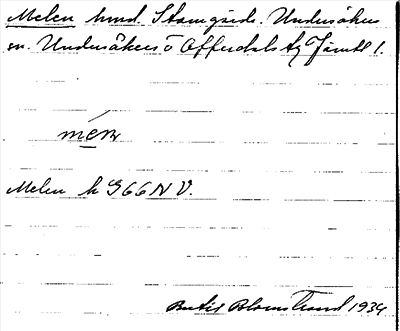 Melen hmd. Stamgärde. Undersåkers
sn. Undersåkers o Offerdals tg Jämtl l.
mén
Melen h 966 N V.
Bertil Blomstrand 1934